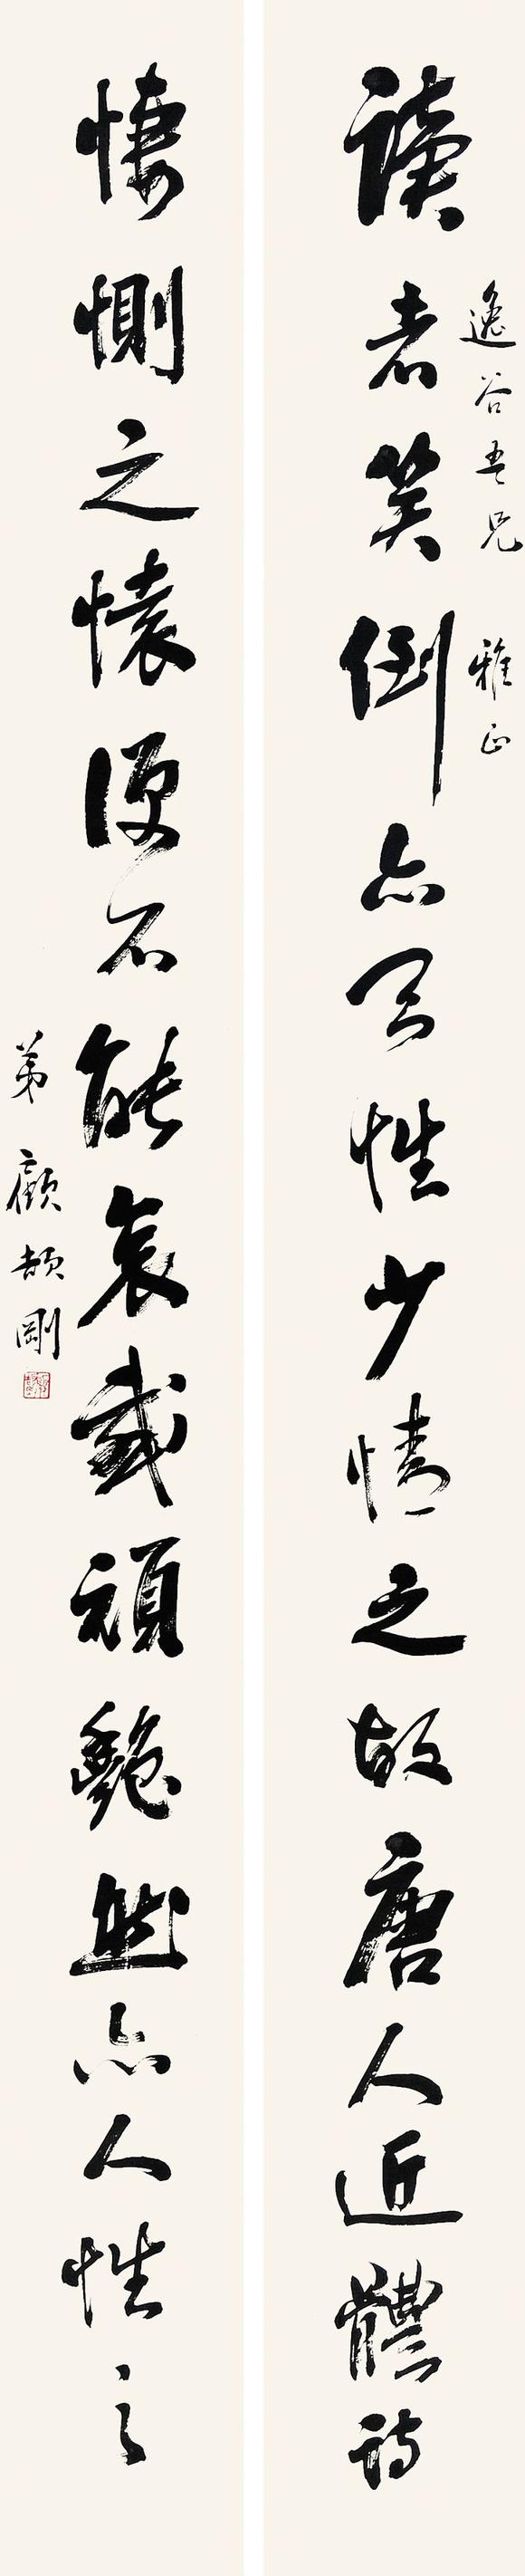 逸谷吾兄 雅正
讀者笑倒亦性少情之故唐人近體詩
悽惻之懷便不能哀感頑艷然亦人性之
弟 顧頡剛